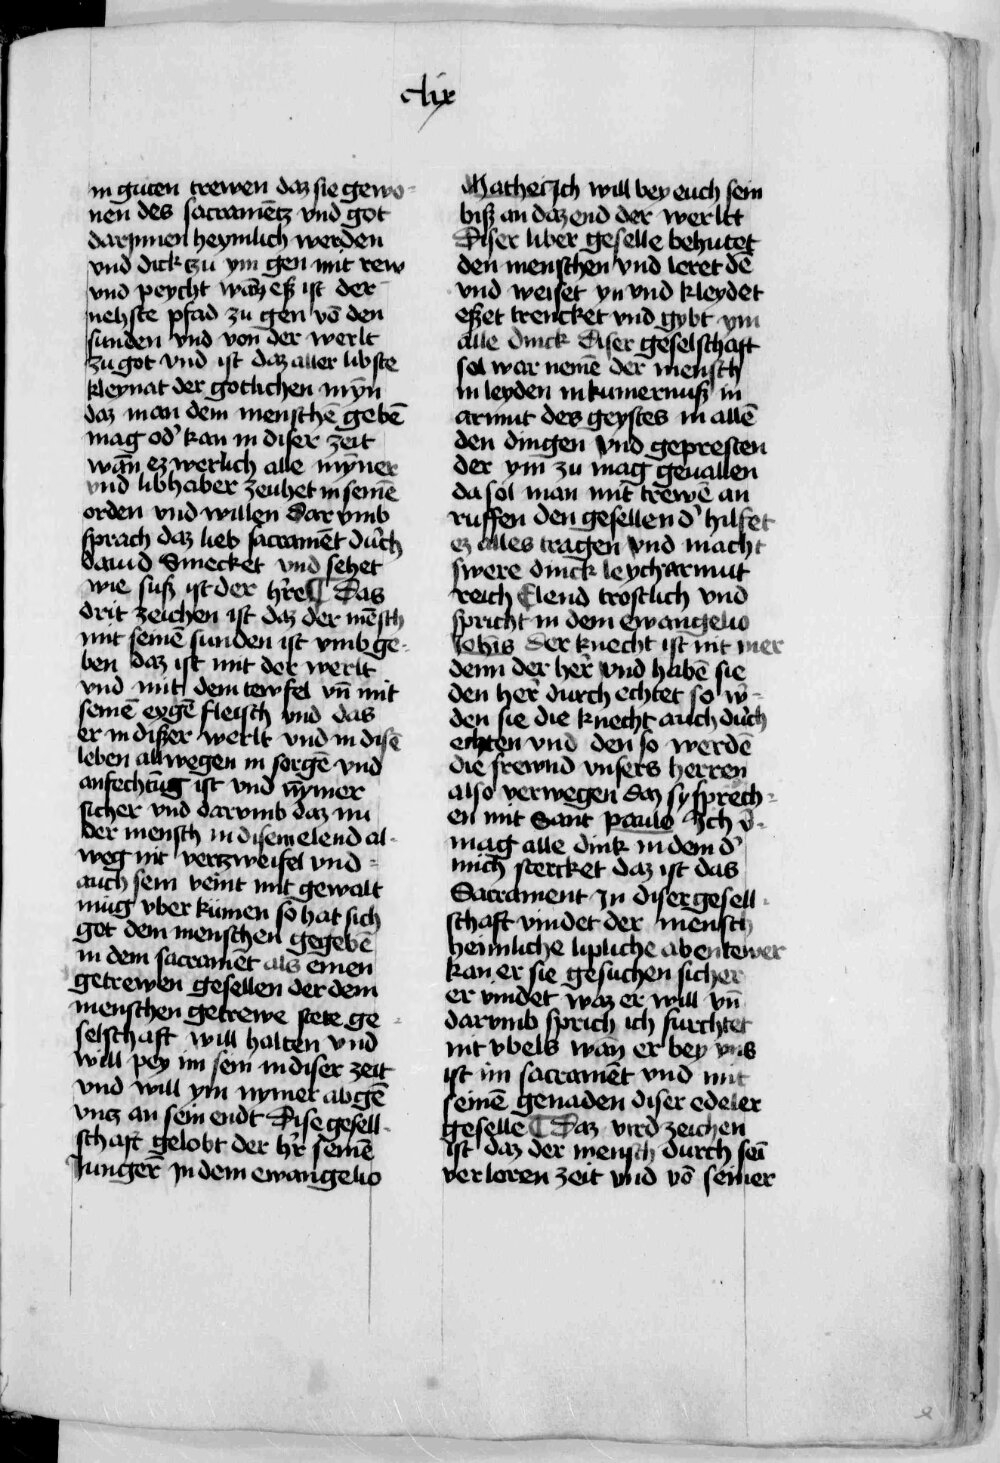 clix
in guten trewen daz sie gewo-
nen des sacramētz vnd got
darjnnen heymlich werden
vnd dick tzu ym gen mit rew
vnd peycht wān eß ist der
nehste pfad zu gen vō den
sunden vnd von der werlt
zu got vnd ist daz aller libste
kleynat der gotlichen mȳn
daz man dem menschē gebē
mag od' kan in diser zeit
wān ez werlich alle mȳner
vnd libhaber zeuhet in seinē
orden vnd willen Dar vmb
sprach daz lieb sacramēt durch
dauid Smecket vnd sehet
wie suß ist der h're ¶ Das
drit zeichen ist daz der mēsch
mit seinē sunden ist vmb ge-
ben daz ist mit der werlt
vnd mit dem tewfel vn̄ mit
seinē eygē fleisch vnd das
er in dißer werlt vnd in disē
leben allwegen in sorgē vnd
anfechtūg ist vnd nymer
sicher vnd darvmb daz nu
der mensch in disem elend al-
weg nit vertzweifel vnd =
auch sein veint mit gewalt
mug vber kumen so hat sich
got dem menschen gegebē
in dem sacramēt als einen
getrewen gesellen der dem
menschen getrewe stete ge-
selschaft will halten vnd
will pey im sein in diser zeit
vnd will ym nymer abgē
vntz an sein endt Dise gesell-
schaft gelobt der h'r seinē
Jungerē Jn dem ewangelio
Mathei Jch will bey euch sein
biß an daz end der werltt
Diser liber geselle behutet
den menschen vnd leret dē
vnd weiset yn vnd kleydet
eßet trencket vnd gybt ym
alle dinck Diser geselschaft
sol war nemē der mensch
in leyden in kumernuß in
armut des geystes in allē
den dingen vnd gepresten
der ym zu mag geuallen
da sol man mit trewē an
ruffen den gesellen d' hilfet
ez alles tragen vnd macht
swere dinck leych armut
reich Elend trostlich vnd
spricht in dem ewangelio
Johīs Der knecht ist nit mer
denn der her vnd habē sie
den her durch echtet so w'-
den sie die knecht auch durch
echten vnd den so werdē
die frewnd vnsers herren
also verwegen daz sy sprech=
en mit Sant paulo Jch v'-
mag alle dink in dem d'
mich stercket daz ist das
Sacrament Jn diser gesell-
schaft vindet der mensch
heimliche lipliche abentewer
kan er sie gesuchen sicher
er vindet waz er will vn̄
darvmb sprich ich furchtet
nit vbels wān er bey vns
ist im sacramēt vnd mit
seinē genaden diser edeler
geselle ¶ Daz vird zeichen
ist daz der mensch durch seī
verloren zeit vnd vō seiner